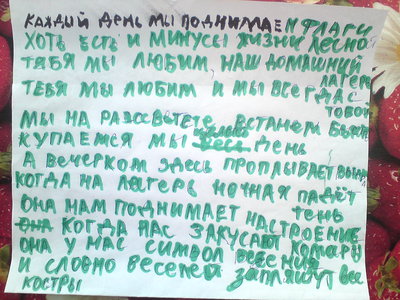 КАЖДЫЙ ДЕНЬ МЫ ПОДНИМАЕМ ФЛАГИ
ХОТЬ ЕСТЬ И МИНУСЫ ЖИЗНИ ЛЕСНО
ТЯБЯ МЫ ЛЮБИМ НАШ ДОМАШНИЙ
ЛАГЕРЬ
ТЕБЯ МЫ ЛЮБИМ И МЫ ВСЕГДА С
ТОБОЙ
МЫ НА РАЗССВЕТЕ ВСТАНЕМ
КУПАЕМСЯ МЫ целый весь ДЕНЬ
А ВЕЧЕРКОМ ЗДЕСЬ ПРОПЛЫВАЕТ
КОГДА НА ЛАГЕРЬ НОЧНАЯ ПАДЁТ
ТЕНЬ
ОНА НАМ ПОДНИМАЕТ НАСТРОЕНИЕ
ОНА КОГДА НАС ЗАКУСАЮТ КОМАРЫ
ОНА У НАС СИМВОЛ ВЕЗЕНИЯ
И СЛОВНО ВЕСЕЛЕЙ ЗАПЛЯШУТ ВСЕ
КОСТРЫ